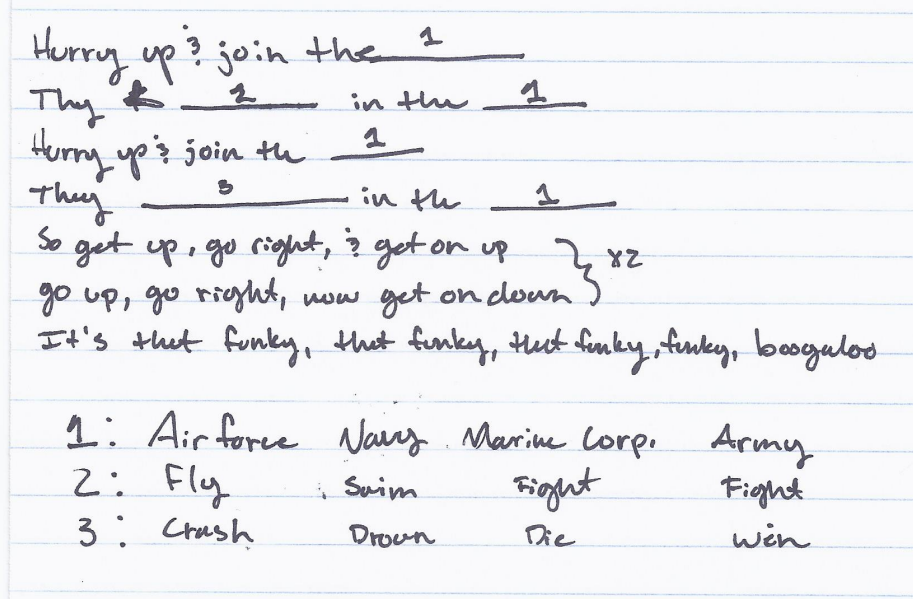 Hurry up & join the 1
They 2 in the 1
Hurry up & join the 1
They 3 in the 1
So get up, go right, & get on up
go up, go right, now get on down } x2
It's that funky, that funky, that funky, funky, boogaloo
1: Air force Navy Marine Corp. Army
2: Fly Swim Fight Fight
3: Crash Drown Die Win